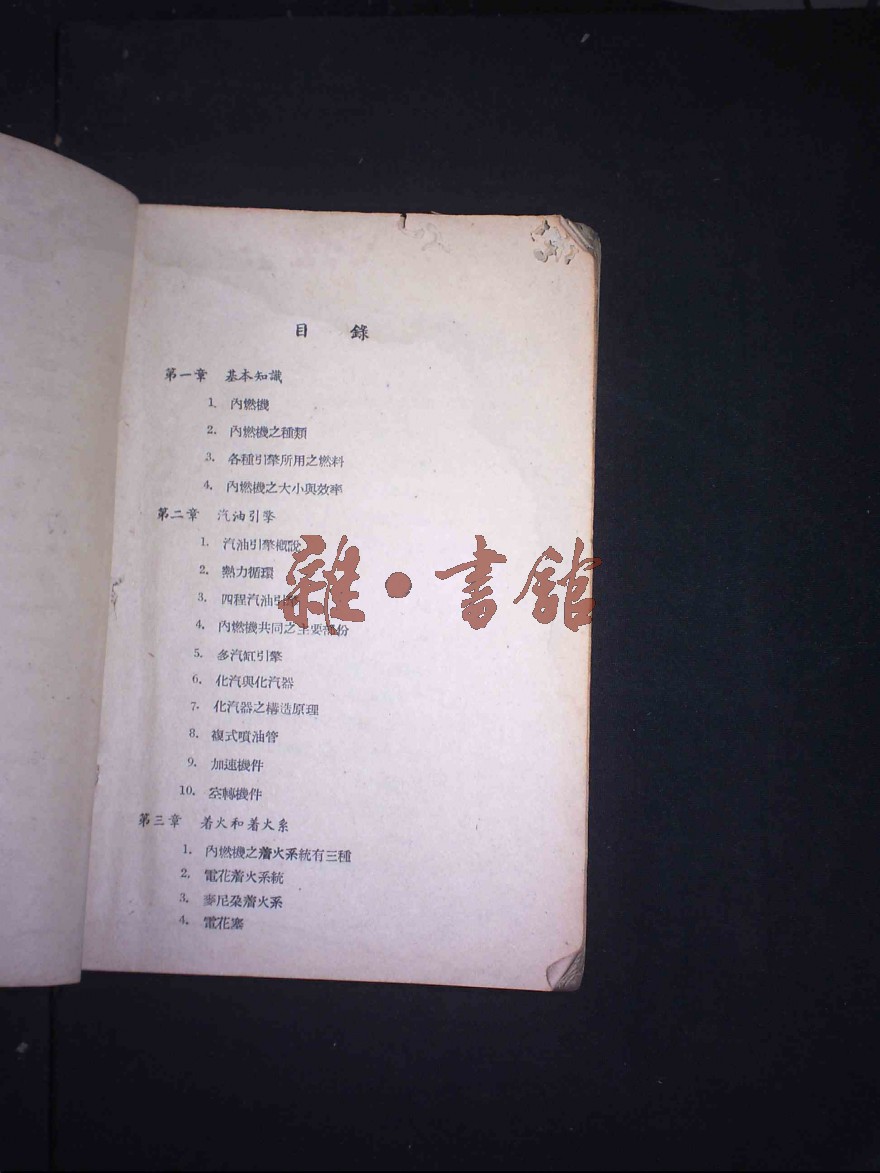 目 錄
第一章 基本知識
1. 內燃機
2. 內燃機之種類
3. 各種引擎所用之燃料
4. 內燃機之大小與效率
第二章 汽油引擎
1. 汽油引擎概說
2. 熱力循環
3. 四程汽油引擎
4. 內燃機共同之主要部份
5. 多汽缸引擎
6. 化汽與化汽器
7. 化汽器之構造原理
8. 複式噴油管
9. 加速機件
10. 空轉機件
第三章 着火和着火系
1. 內燃機之着火系統有三種
2. 電花着火系統
3. 麥尼朶着火系
4. 電花塞
雜·書館